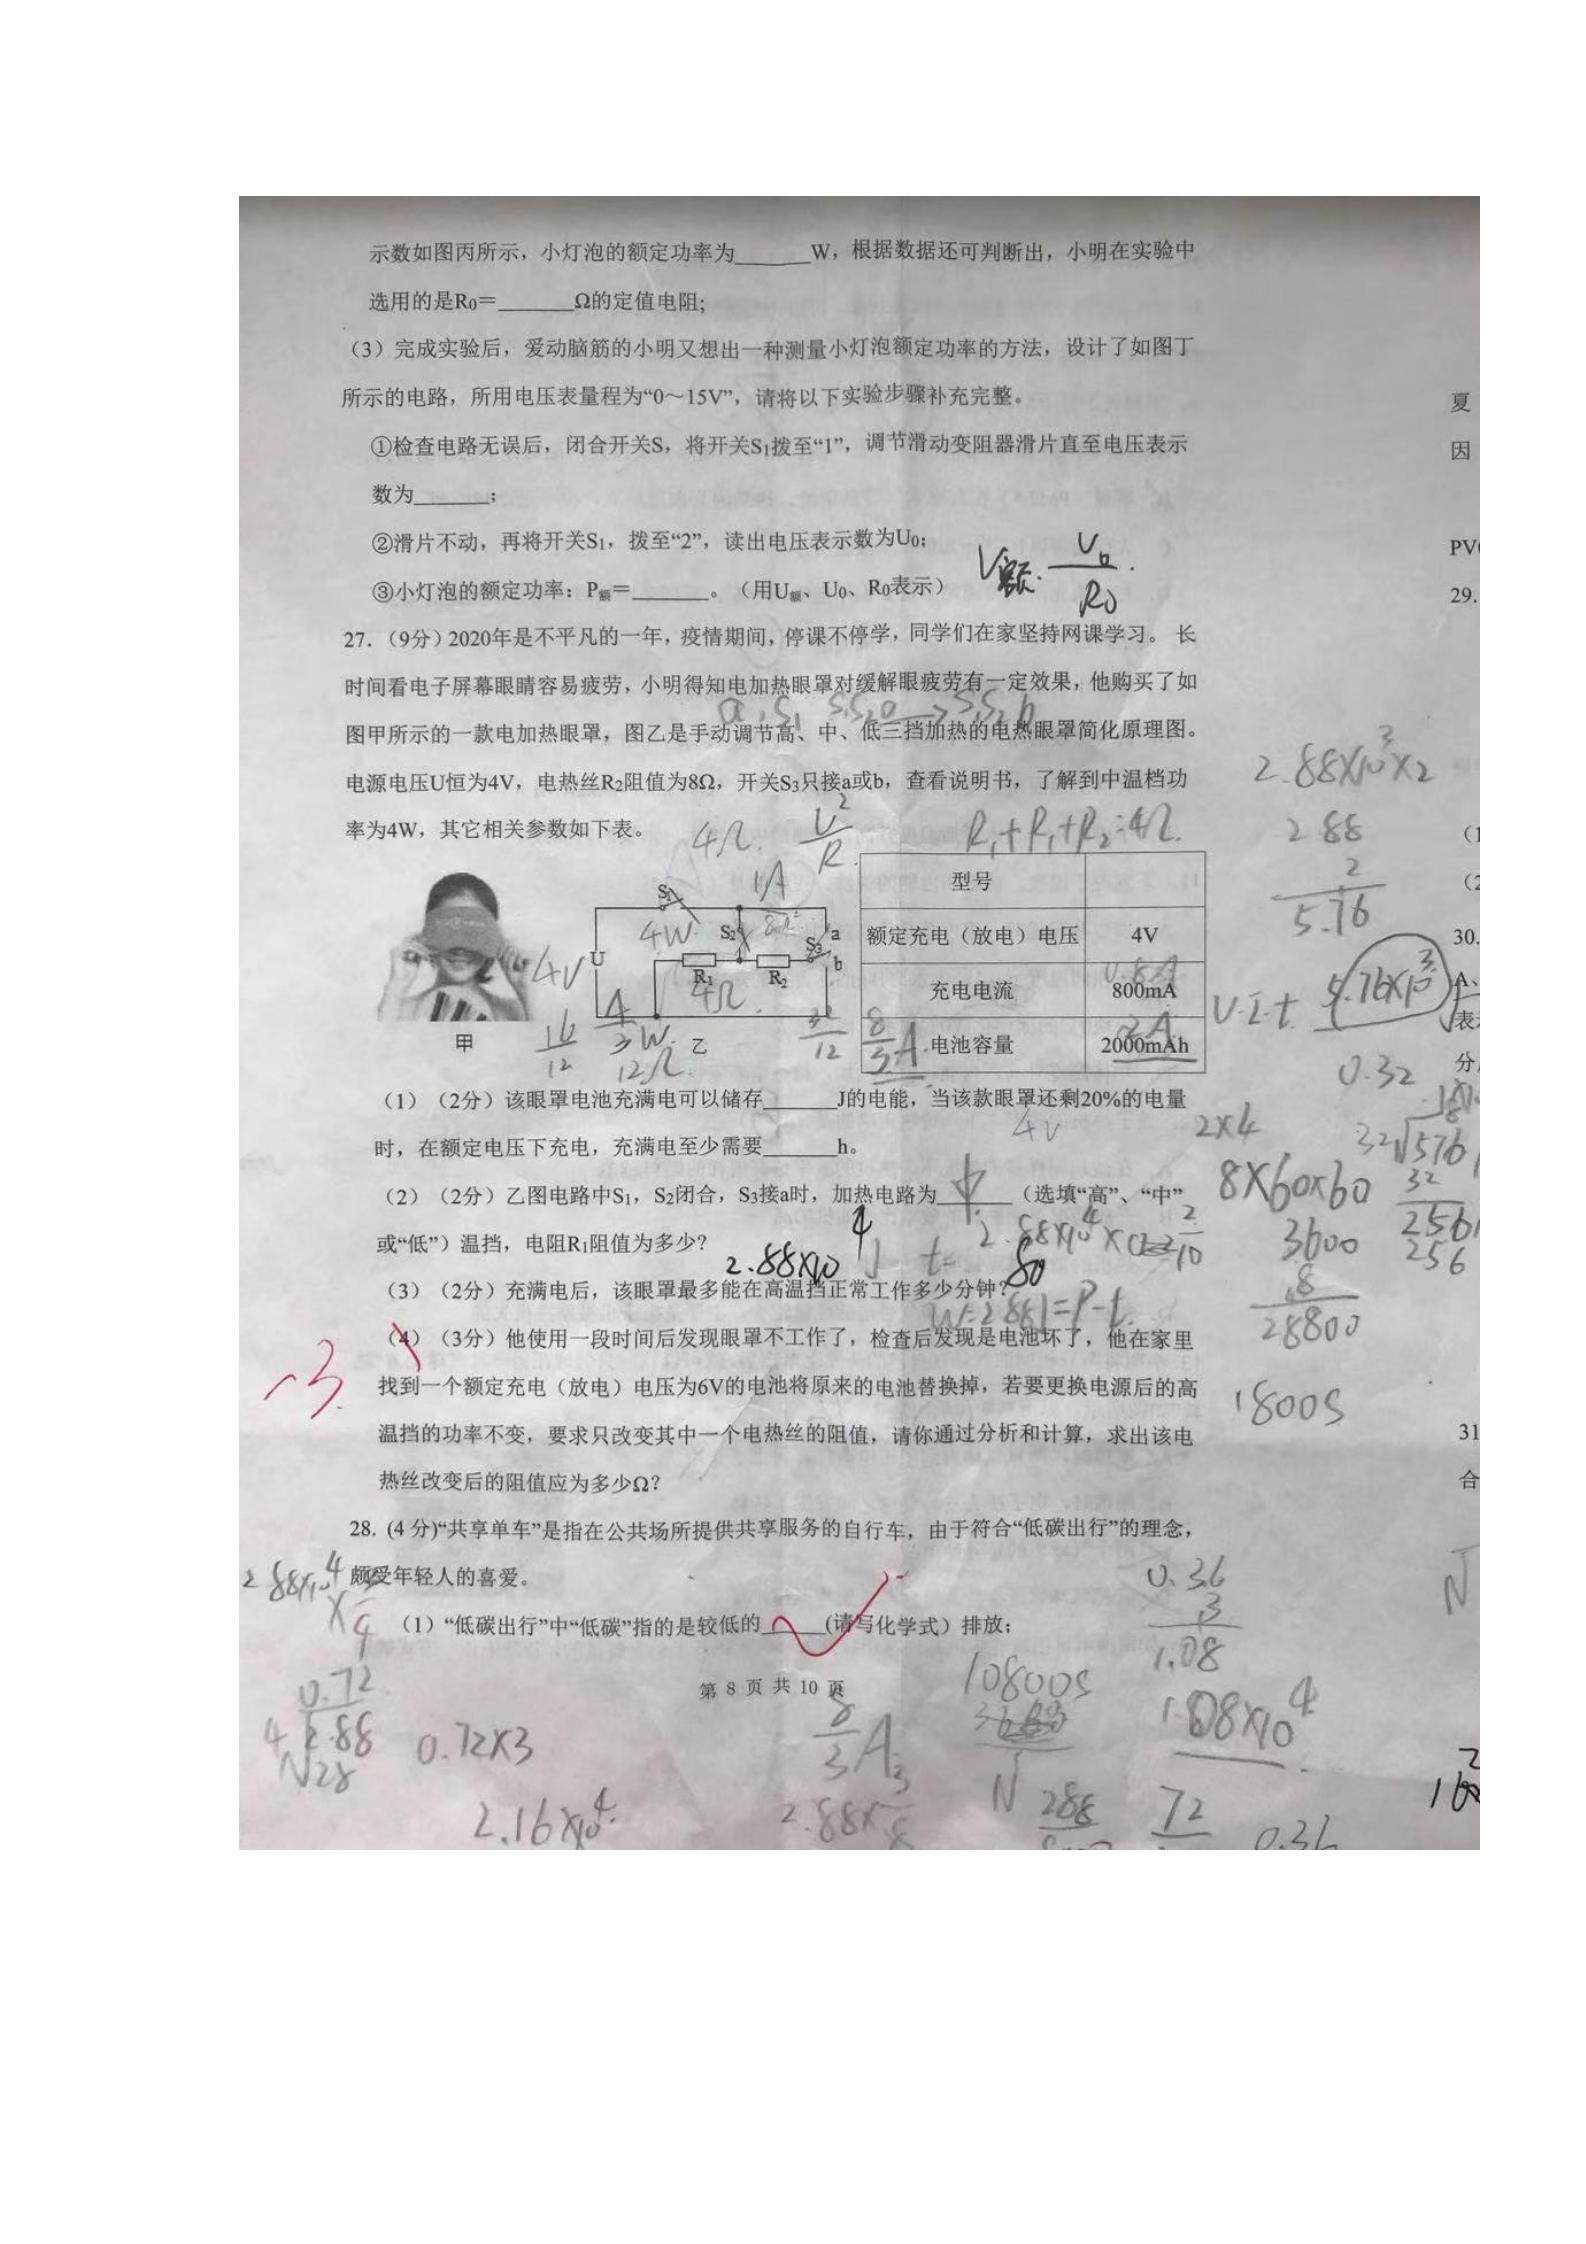 示数如图丙所示，小灯泡的额定功率为______W，根据数据还可判断出，小明在实验中
选用的是R₀＝______Ω的定值电阻;
（3）完成实验后，爱动脑筋的小明又想出一种测量小灯泡额定功率的方法，设计了如图丁
所示的电路，所用电压表量程为“0～15V”，请将以下实验步骤补充完整。
夏
①检查电路无误后，闭合开关S，将开关S₁拨至“1”，调节滑动变阻器滑片直至电压表示
因
数为______；
②滑片不动，再将开关S₁，拨至“2”，读出电压表示数为U₀；
PV
③小灯泡的额定功率：P额＝______。（用U额、U₀、R₀表示）
U额· U₀/R₀
29.
27.（9分）2020年是不平凡的一年，疫情期间，停课不停学，同学们在家坚持网课学习。 长
时间看电子屏幕眼睛容易疲劳，小明得知电加热眼罩对缓解眼疲劳有一定效果，他购买了如
图甲所示的一款电加热眼罩，图乙是手动调节高、中、低三挡加热的电热眼罩简化原理图。
电源电压U恒为4V，电热丝R₂阻值为8Ω，开关S₃只接a或b，查看说明书，了解到中温档功
2.88×10³×2
率为4W，其它相关参数如下表。
4Ω. U²/R R₁+R₁+R₂=4Ω.
288
2
5.76
型号
额定充电（放电）电压 4V
充电电流 800mA
0.8A
电池容量 2000mAh
2A
S₁ 1A
4W S₂ 8Ω a
4V U S₃ b
R₁ R₂
4Ω
16/12 4/3W 12Ω 32/12 8/3A
甲 乙
30.
U·I·t 5.76×10³
0.32
（1）（2分）该眼罩电池充满电可以储存______J的电能，当该款眼罩还剩20%的电量
4V 2×4 32 576
时，在额定电压下充电，充满电至少需要______h。
8×60×60
（2）（2分）乙图电路中S₁，S₂闭合，S₃接a时，加热电路为__中__（选填“高”、“中”
或“低”）温挡，电阻R₁阻值为多少?
2.88×10⁴J
3600
8
28800
32
256
256
（3）（2分）充满电后，该眼罩最多能在高温挡正常工作多少分钟?
（4）（3分）他使用一段时间后发现眼罩不工作了，检查后发现是电池坏了，他在家里
-3
找到一个额定充电（放电）电压为6V的电池将原来的电池替换掉，若要更换电源后的高
1800S
温挡的功率不变，要求只改变其中一个电热丝的阻值，请你通过分析和计算，求出该电
31
热丝改变后的阻值应为多少Ω?
合
28. (4 分)“共享单车”是指在公共场所提供共享服务的自行车，由于符合“低碳出行”的理念，
颇受年轻人的喜爱。
2.88×10⁴
0.36
3
1.08
（1）“低碳出行”中“低碳”指的是较低的______(请写化学式）排放；
第 8 页 共 10 页
10800S
1.08×10⁴
0.72
4 2.88
28
0.72×3
8/3A
2.16×10⁴
2.88×3/8
288
72
0.36